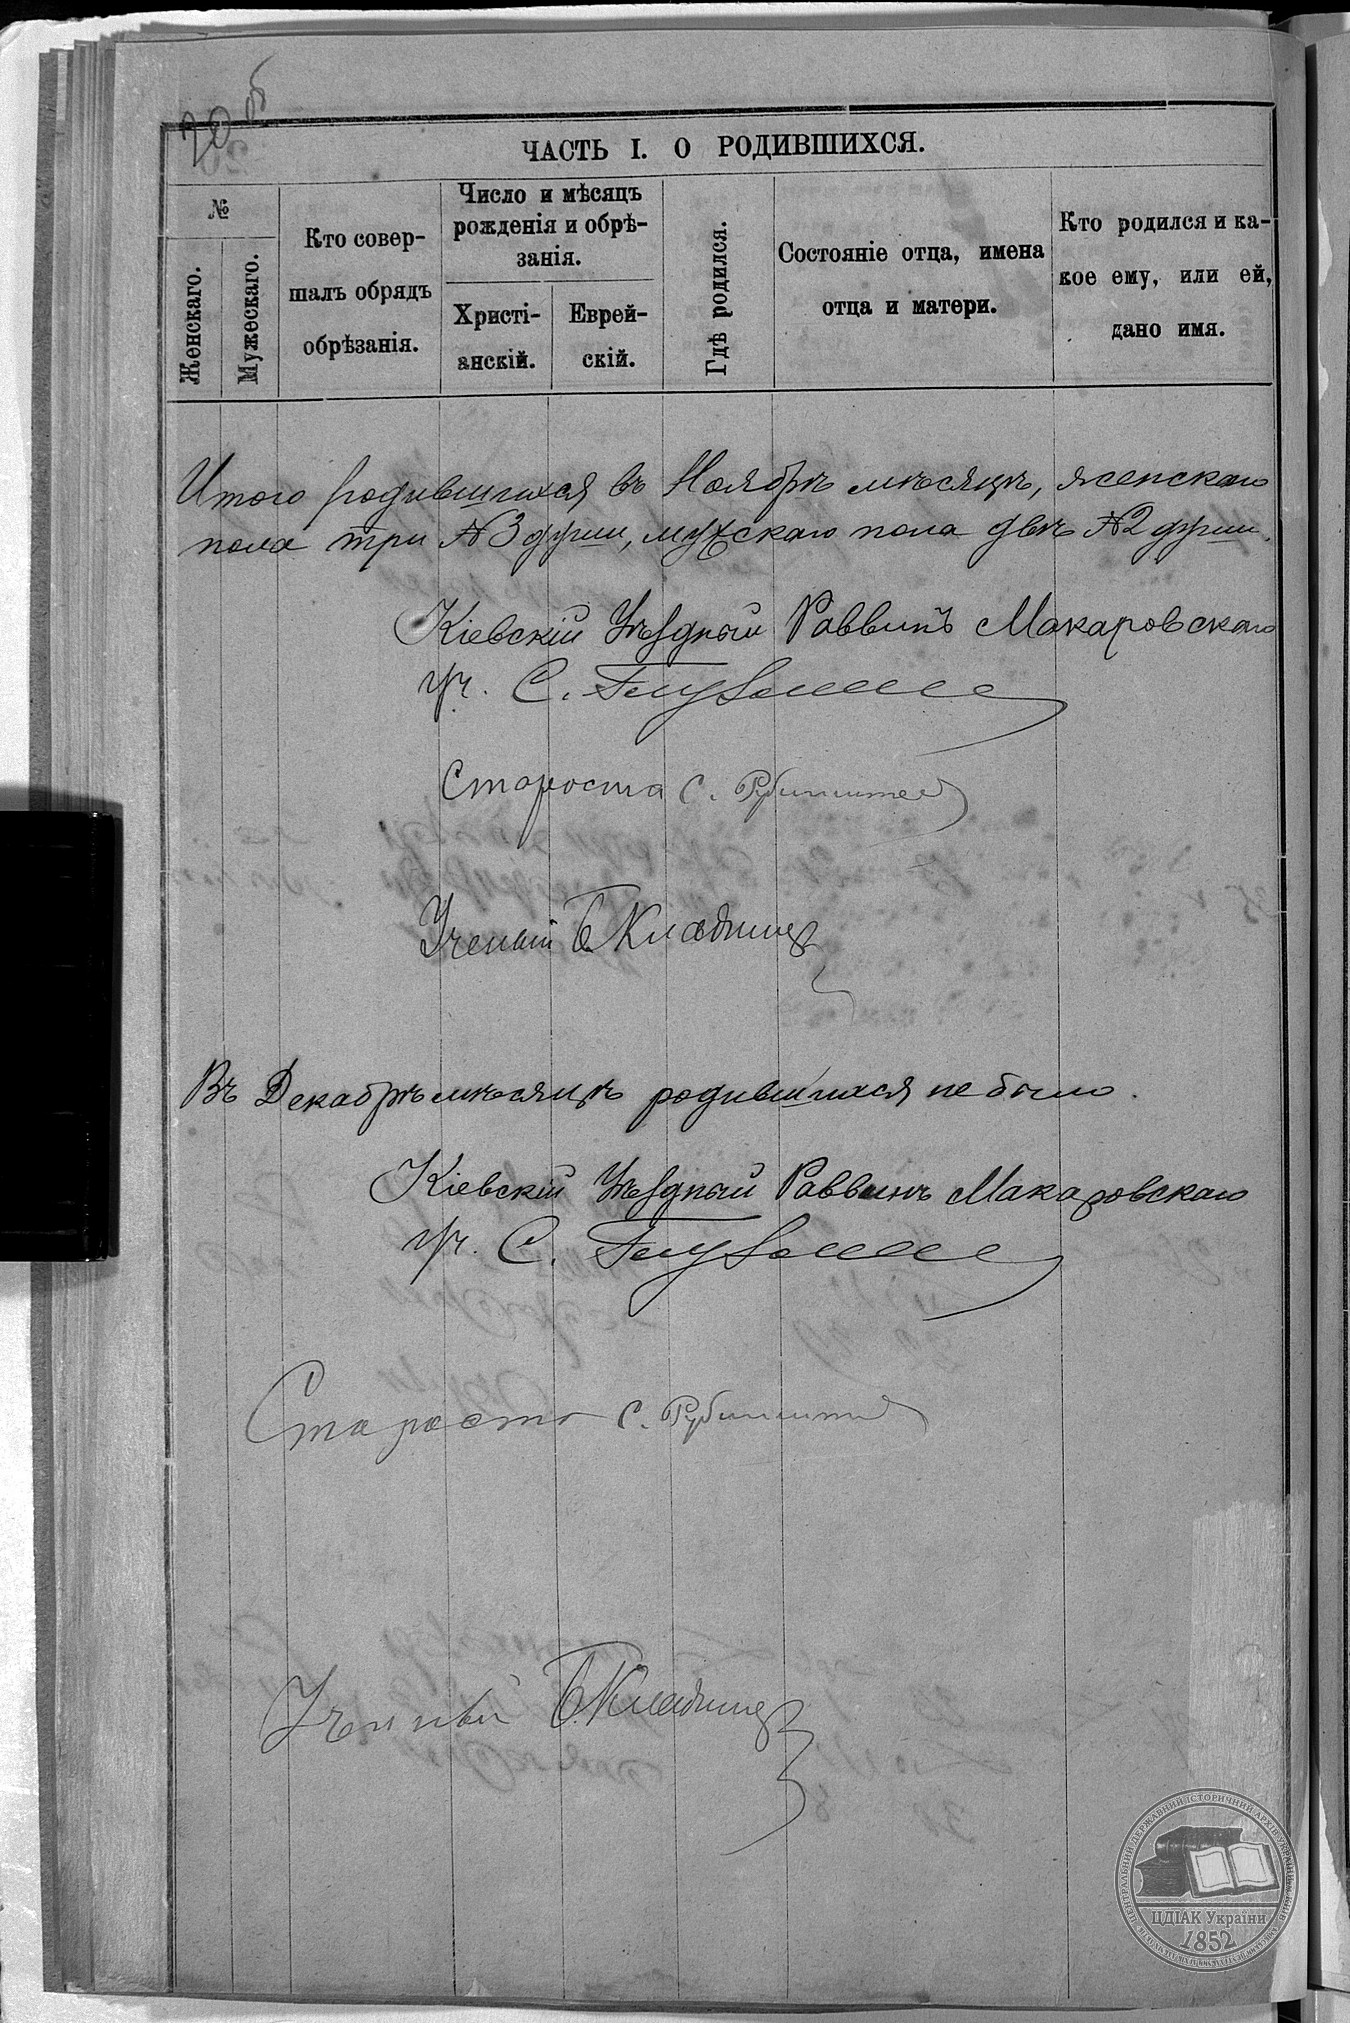 20 об
ЧАСТЬ I. О РОДИВШИХСЯ.
№
Женскаго.
Мужескаго.
Кто совер-
шалъ обрядъ
обрѣзанія.
Число и мѣсяцъ
рожденія и обрѣ-
занія.
Христі-
анскій.
Еврей-
скій.
Гдѣ родился.
Состояніе отца, имена
отца и матери.
Кто родился и ка-
кое ему, или ей,
дано имя.
Итого родившихся въ Ноябрѣ мѣсяцѣ, женскаго
пола три № 3 души, мужскаго пола двѣ № 2 души.
Кіевскій Уѣздный Раввинъ Макаровскаго
уч. С.
Староста С.
Ученый Б.
Въ Декабрѣ мѣсяцѣ родившихся не было.
Кіевскій Уѣздный Раввинъ Макаровскаго
уч. С.
Староста С.
Ученый Б.
ЦЕНТРАЛЬНИЙ ДЕРЖАВНИЙ ІСТОРИЧНИЙ АРХІВ УКРАЇНИ, М. КИЇВ
ЦДІАК України
1852